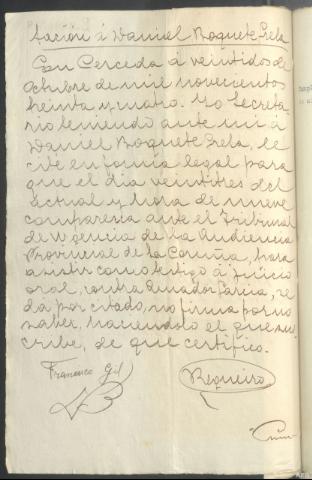 tación á Daniel Roquete Grela
En Cerceda á veintidos de
octubre de mil novecientos
treinta y cuatro. Yo Secreta-
rio teniendo ante mi á
Daniel Roquete Grela, le
cité en forma legal para
que el dia veintitres del
actual y hora de nueve
comparezca ante el Tribunal
de Urgencia de la Audiencia
Provincial de la Coruña, para
asistir como testigo á juicio
oral, contra Amador Garcia, se
dá por citado, no firma por no
saber, haciendolo el que sus-
cribe, de que certifico.
Francisco Gil
Regueiro